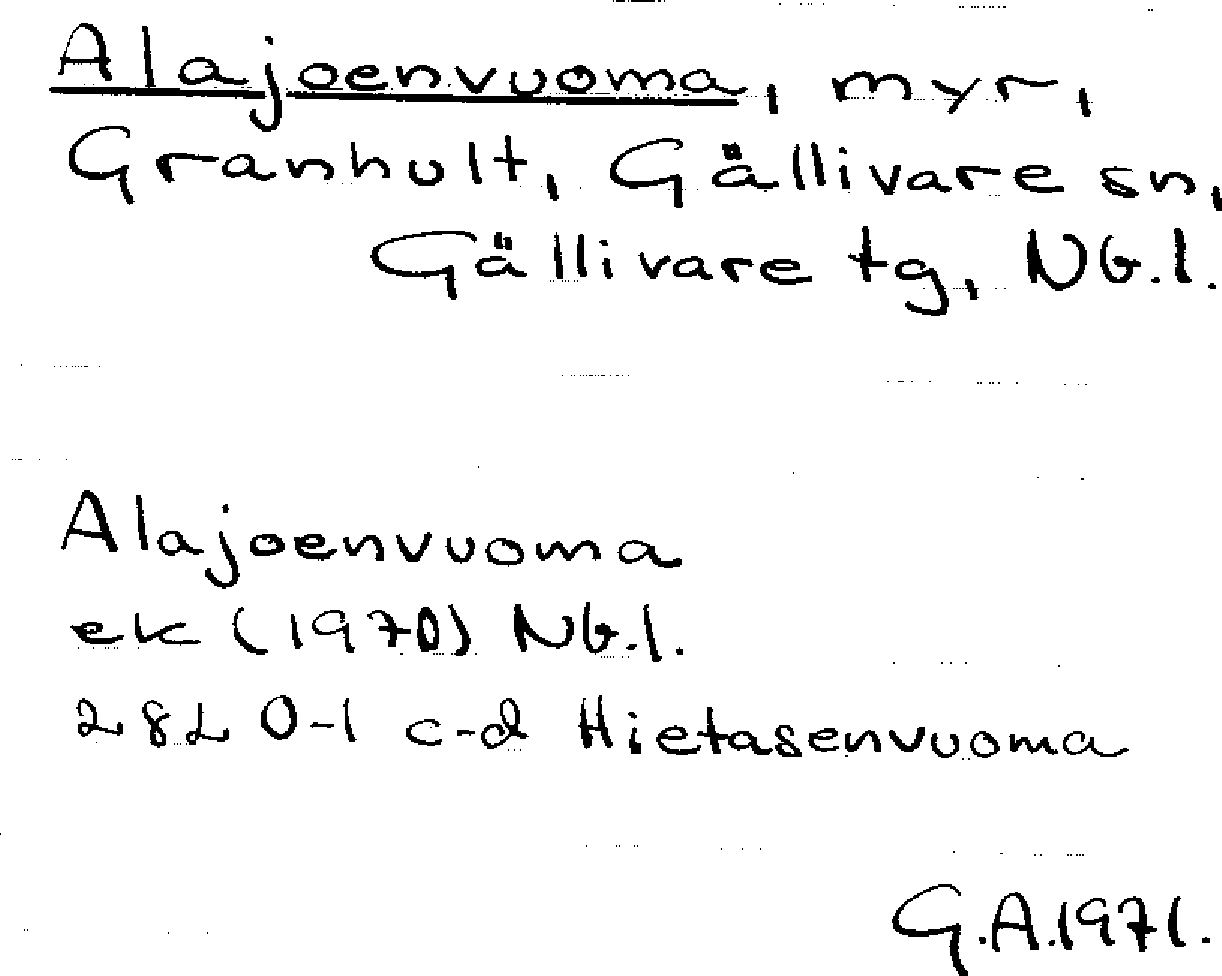 Alajoenvuoma, myr,
Granhult, Gällivare sn,
Gällivare tg, Nb.l.
Alajoenvuoma
ek (1970) Nb.l.
28L 0-1 c-d Hietasenvuoma
G.A.1971.